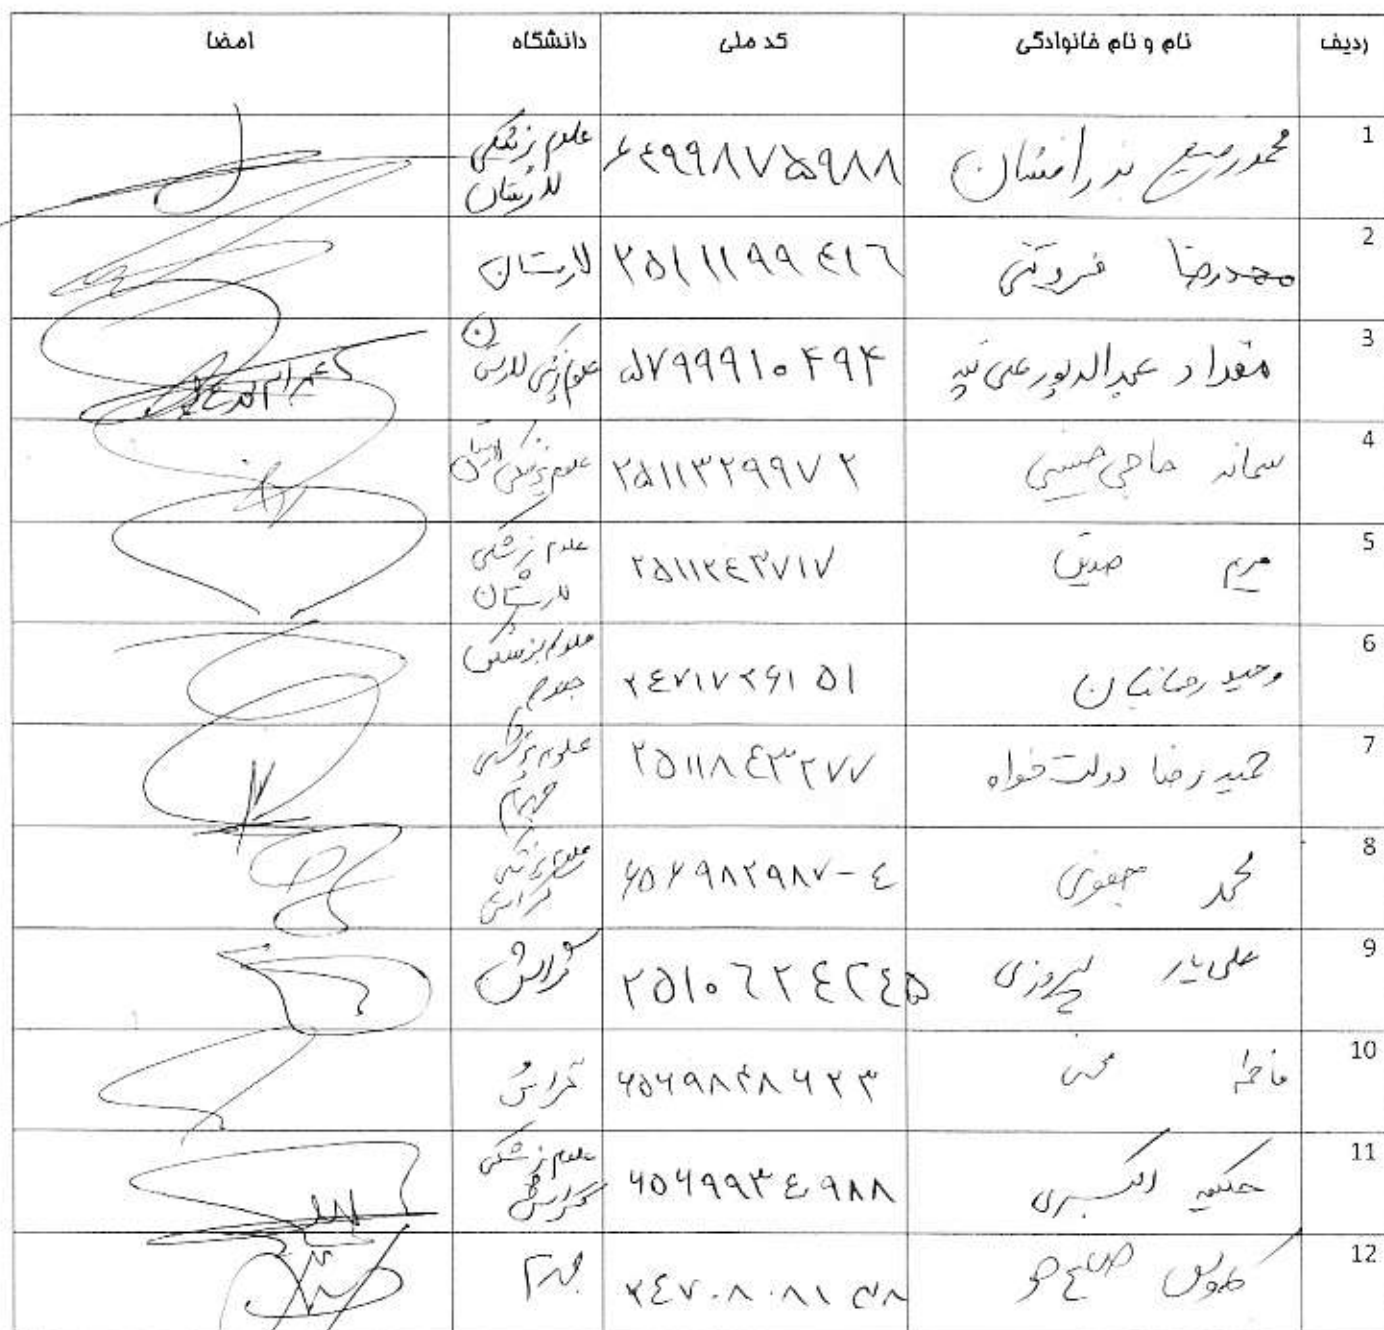 ردیف نام و نام خانوادگی کد ملی دانشگاه امضا
1 محمدربیع بذرافشان ۶۴۹۹۸۷۵۹۸۸ علوم پزشکی لارستان
2 محمدرضا فروتنی ۲۵۱۱۱۹۹۴۱۶ لارستان
3 مقداد عبدالهپور علی تپه ۵۷۹۹۹۱۰۴۹۴ علوم پزشکی لارستان
4 سمانه حاجی حسینی ۲۵۱۱۳۲۹۹۷۲ علوم پزشکی لارستان
5 مریم صدیق ۲۵۱۱۲۴۳۷۱۷ علوم پزشکی لارستان
6 وحید رحمانیان ۲۴۷۱۷۲۶۱۵۱ علوم پزشکی جهرم
7 حمیدرضا دولت خواه ۲۵۱۱۸۴۳۲۷۷ علوم پزشکی جهرم
8 محمد جعفری ۶۵۶۹۸۲۹۸۷-۴ علوم پزشکی گراش
9 علی یار پیروزی ۲۵۱۰۶۲۴۲۴۵ گراش
10 فاطمه محبی ۶۵۶۹۸۴۸۶۲۳ گراش
11 حکیمه اکبری ۶۵۶۹۹۳۴۹۸۸ علوم پزشکی گراش
12 کاووس صلح جو جهرم